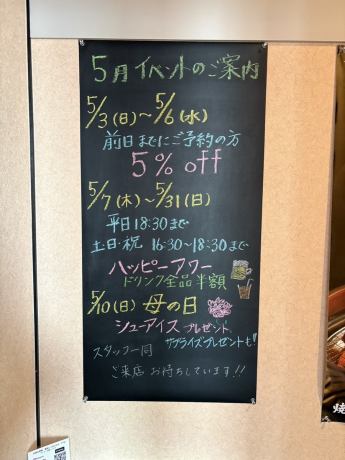 5月イベントのご案内
5/3(日)〜5/6(水)
前日までにご予約の方
5% off
5/7(木)〜5/31(日)
平日18:30まで
土日・祝 16:30〜18:30まで
ハッピーアワー
ドリンク全品半額
5/10(日) 母の日
シューアイス プレゼント、
サプライズプレゼントも!!
スタッフ一同
ご来店 お待ちしています!!
焼